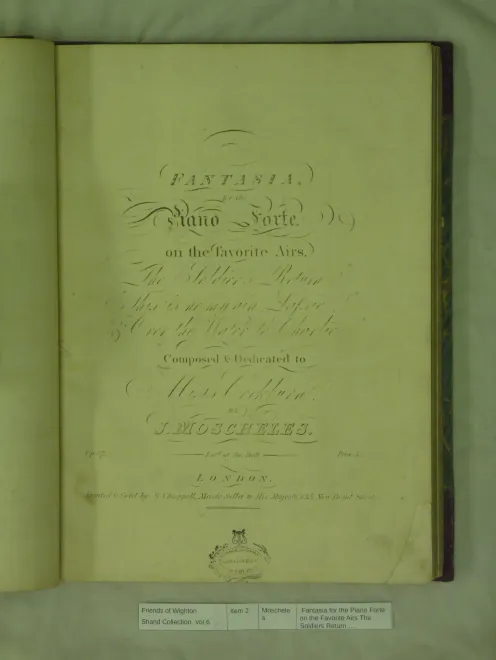 FANTASIA,
for the
Piano Forte,
on the favorite Airs,
The Soldier's Return
Over the Water to Charlie
Composed & Dedicated to
Miss Cockburn
BY
J. MOSCHELES.
Ent. at Sta. Hall
LONDON,
Chappell, Music Seller to His Majesty, New Bond Street
Friends of Wighton
Shand Collection Vol 6
item 2
Moschele
s
Fantasia for the Piano Forte
on the Favorite Airs The
Soldiers Return ...